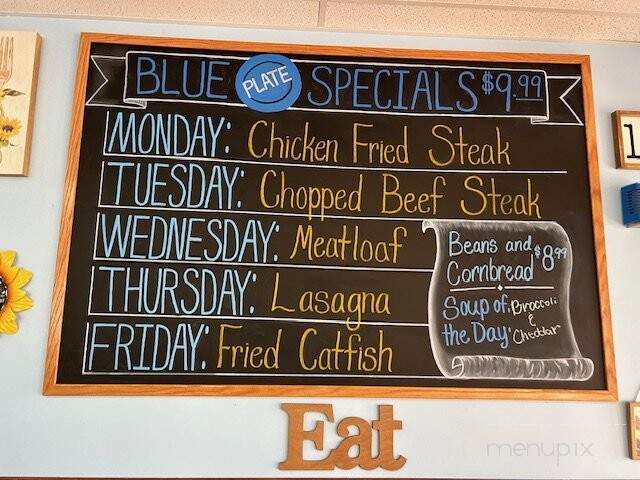 BLUE PLATE SPECIALS $9.99
MONDAY: Chicken Fried Steak
TUESDAY: Chopped Beef Steak
WEDNESDAY: Meatloaf
THURSDAY: Lasagna
FRIDAY: Fried Catfish
Beans and
Cornbread $8.99
Soup of
the Day:
Broccoli
&
Cheddar
Eat
menupix